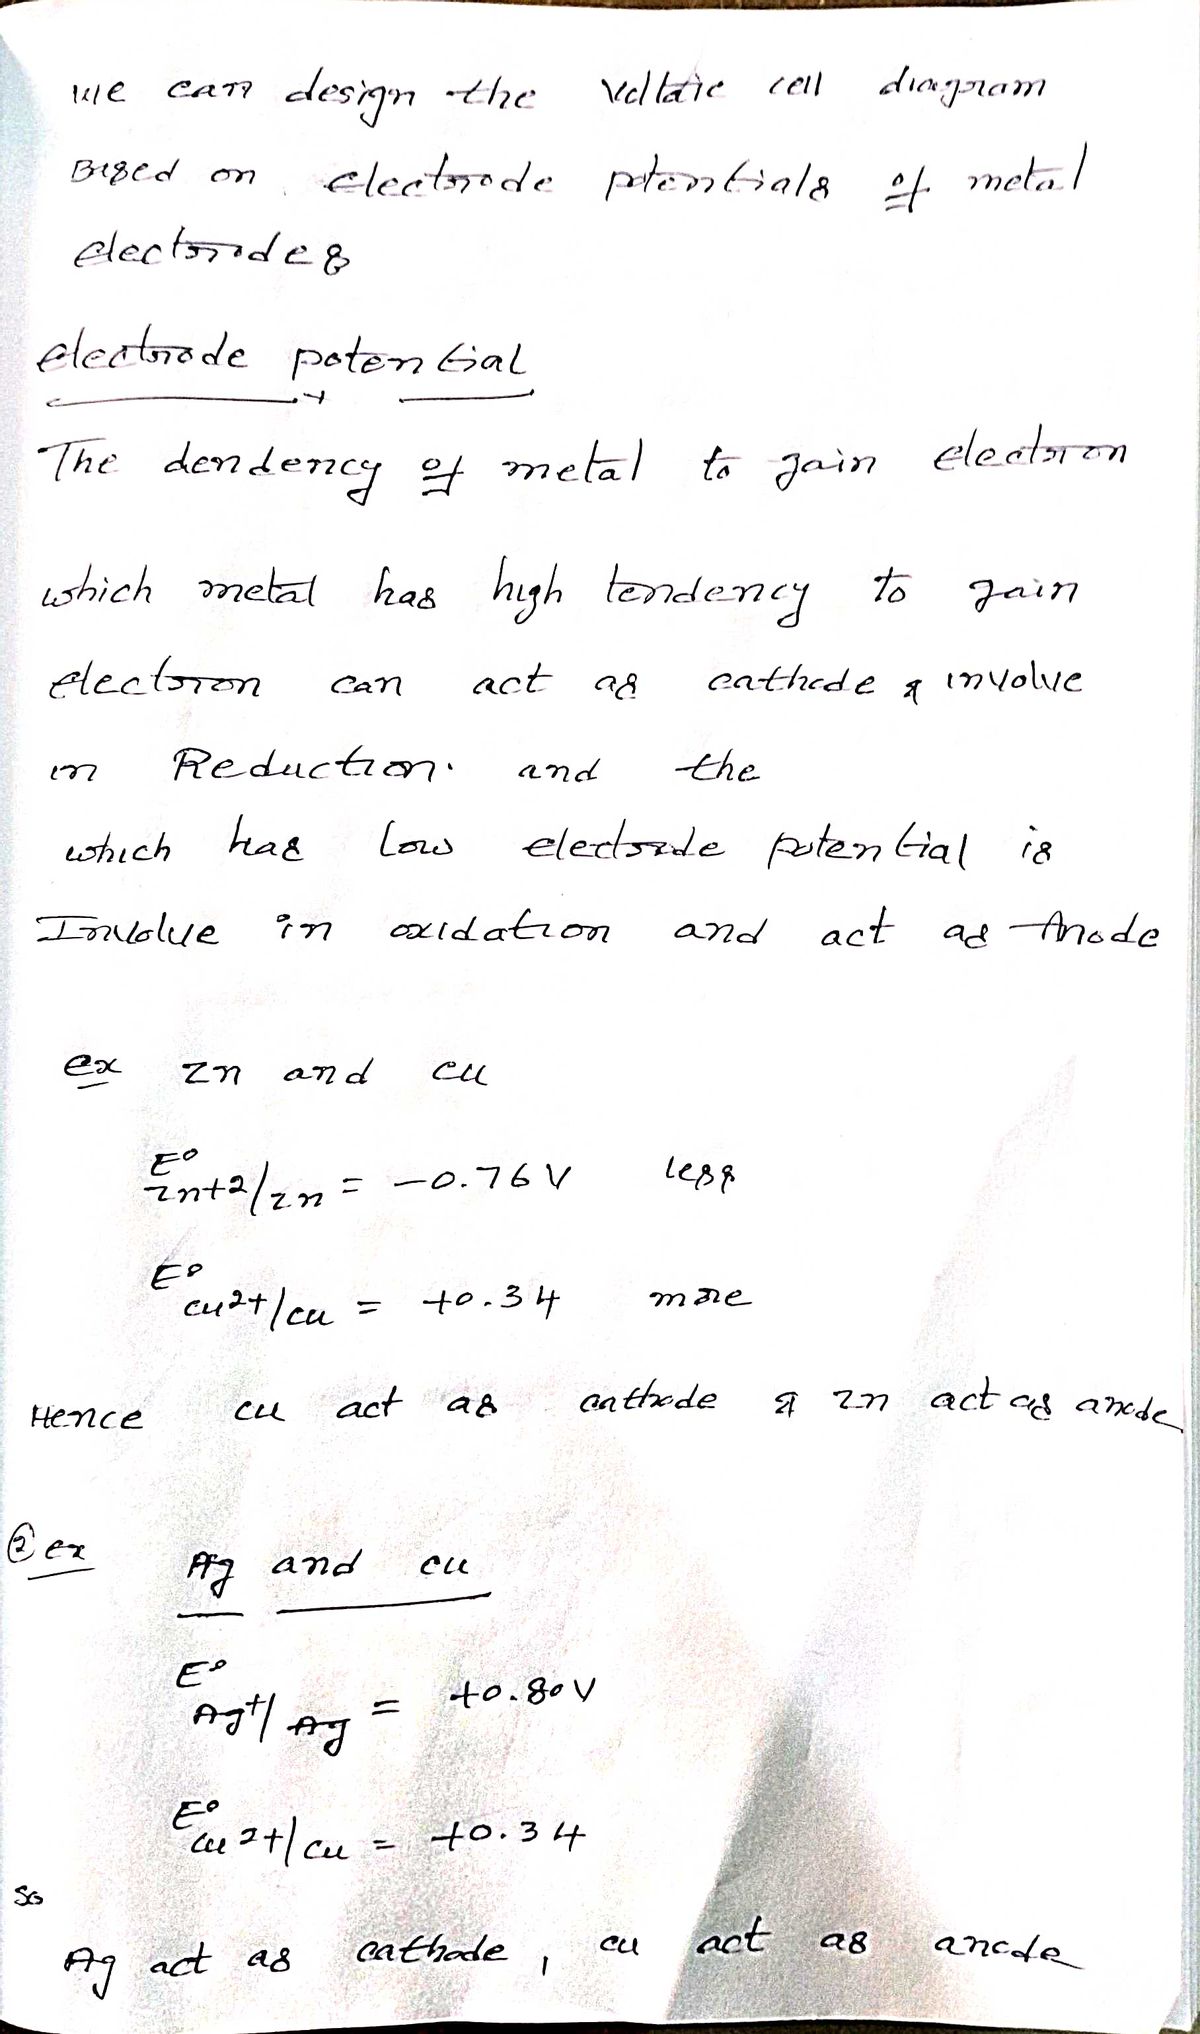 We can design the voltaic cell diagram
Based on electrode potentials of metal
electrodes
electrode potential
The dendency of metal to gain electron
which metal has high tendency to gain
electron can act as cathode & involve
in Reduction. and the
which has low electrode potential is
Involve in oxidation and act as Anode
ex Zn and cu
E°
Zn+2/Zn = -0.76 V less
E°
cu2+/cu = +0.34 more
Hence cu act as cathode & Zn act as anode
② ex Ag and cu
E°
Ag+/Ag = +0.80 V
E°
cu2+/cu = +0.34
So
Ag act as cathode, cu act as anode